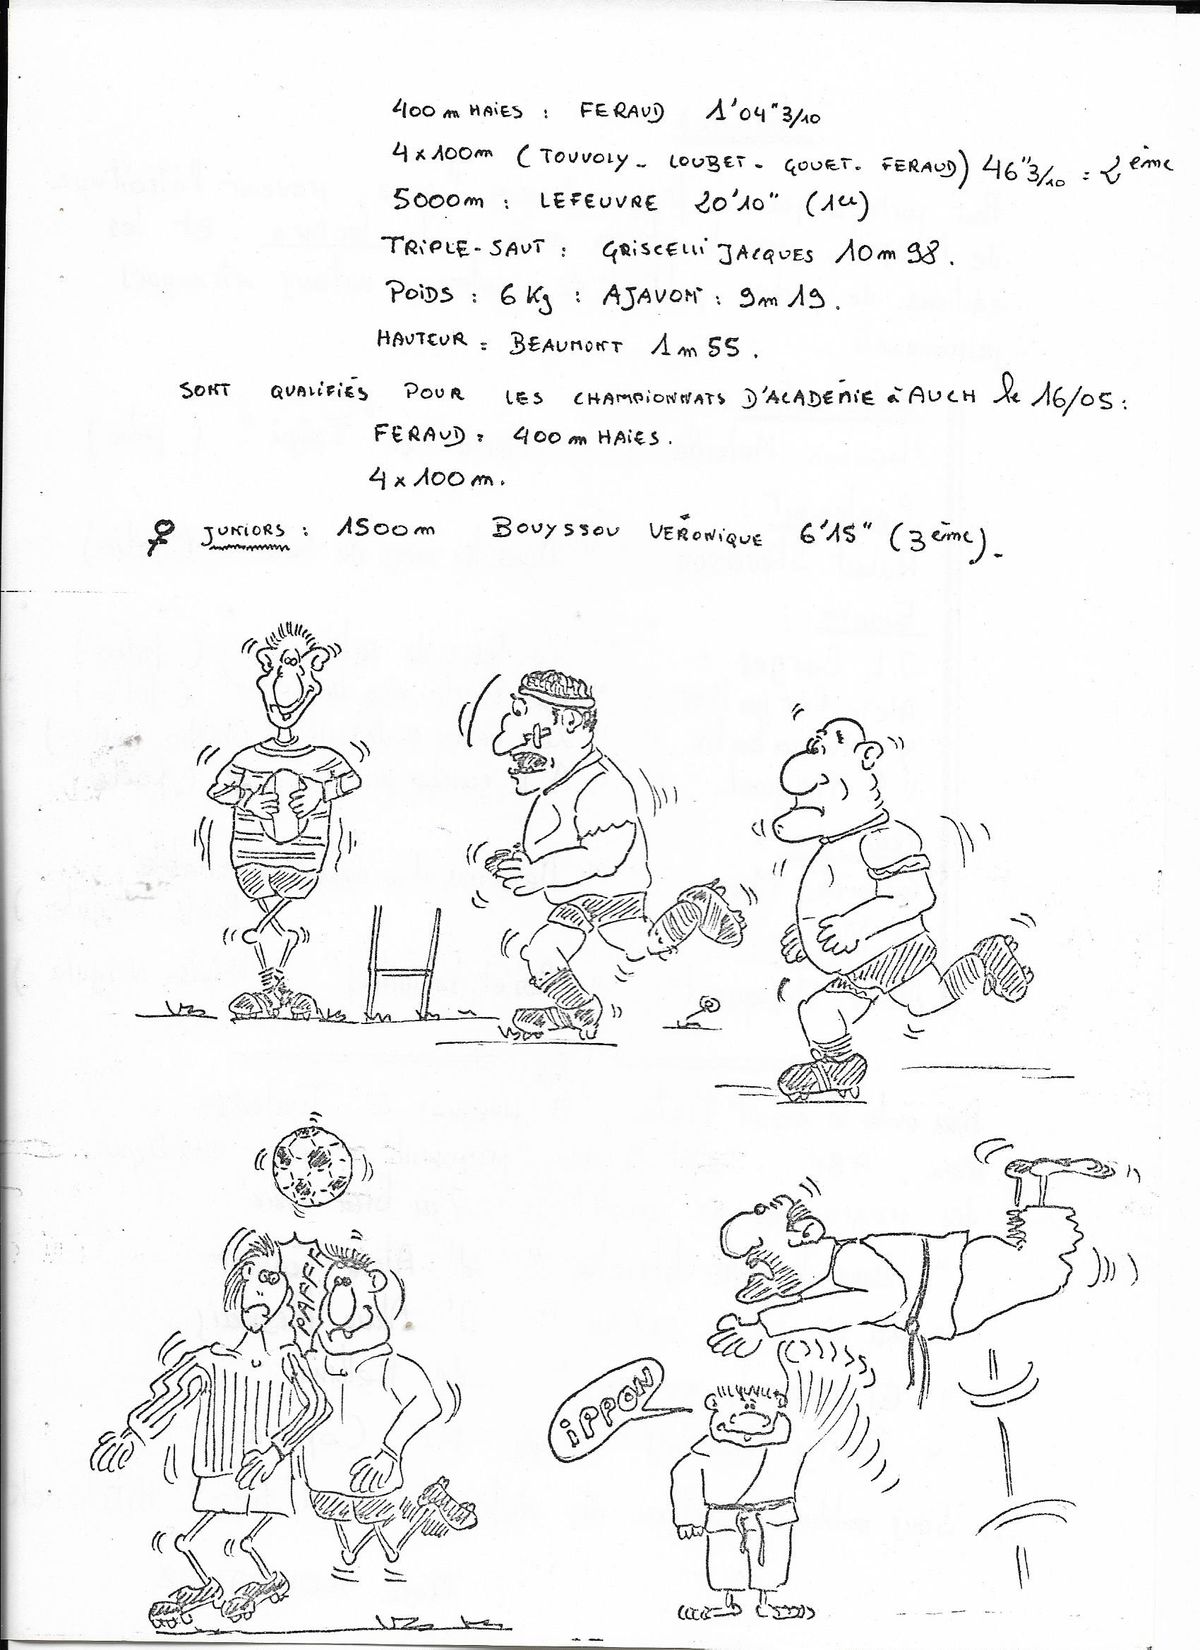 400 m HAIES : FERAUD 1'04"3/10
4 x 100m (TOUVOLY - LOUBET - GOUET - FERAUD) 46"3/10 : 2ème
5000m : LEFEUVRE 20'10" (1er)
TRIPLE-SAUT : GRISCELLI JACQUES 10m98.
POIDS : 6 Kg : AJAVON : 9m19.
HAUTEUR : BEAUMONT 1m55.
SONT QUALIFIÉS POUR LES CHAMPIONNATS D'ACADÉMIE à AUCH le 16/05 :
FERAUD : 400 m HAIES.
4 x 100m.
♀ JUNIORS : 1500m BOUYSSOU VÉRONIQUE 6'15" (3ème).
PAFFF
IPPON